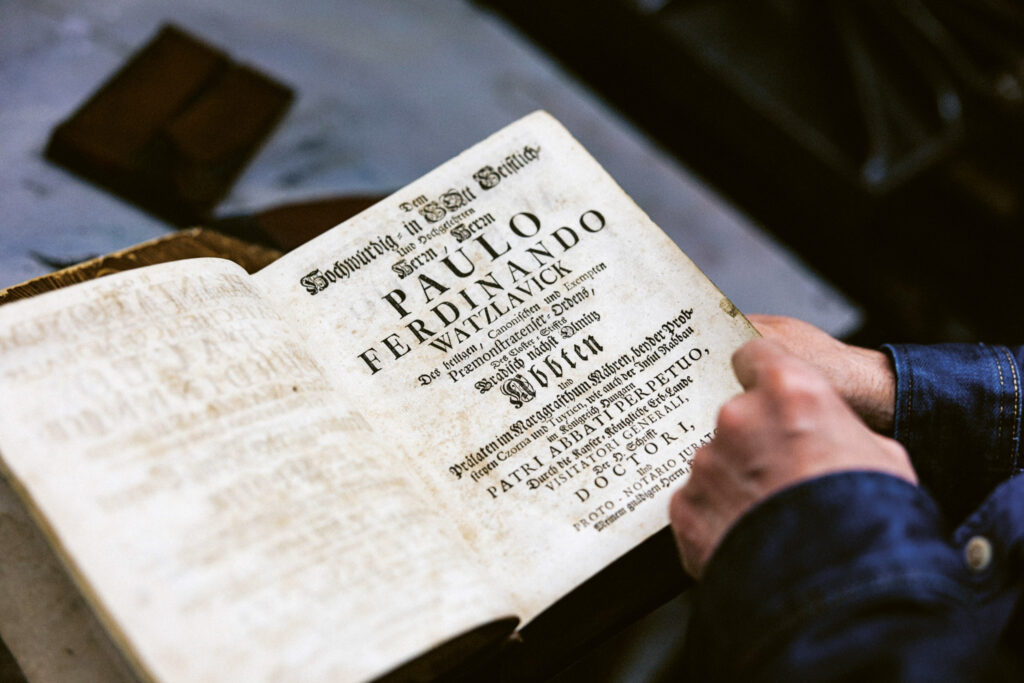 Dem
Hochwürdig-in GOtt Geistlich-
und Hochgelehrten
Herrn, Herrn
PAULO
FERDINANDO
WATZLAVICK
Des heiligen, Canonischen und Exempten
Præmonstratenser-Ordens,
Des Closter-Stiffts
Hradisch nächst Olmütz
Abbten
und
Prälaten im Marggrafthum Mähren, beyder Prob-
steyen Czorna und Tuyrien, wie auch der Insul Rabbau
im Königreich Hungarn
PATRI ABBATI PERPETUO,
Durch die Kayser, Königliche Erb-Lande
VISITATORI GENERALI,
Der H. Schrifft
DOCTORI,
und
PROTO-NOTARIO JURATO
Meinem gnädigen Herrn,